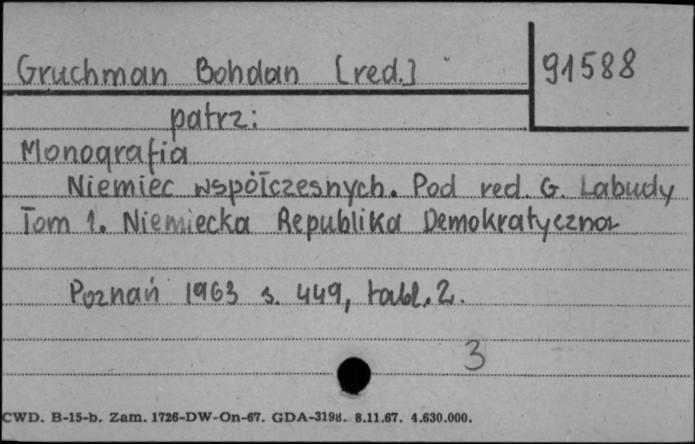 Gruchman Bohdan [red.]
91588
patrz:
Monografia
Niemiec współczesnych. Pod red. G. Labudy
Tom 1. Niemiecka Republika Demokratyczna
Poznań 1963 s. 449, tabl. 2.
3
CWD. B-15-b. Zam. 1726-DW-On-67. GDA-3198. 8.11.67. 4.630.000.